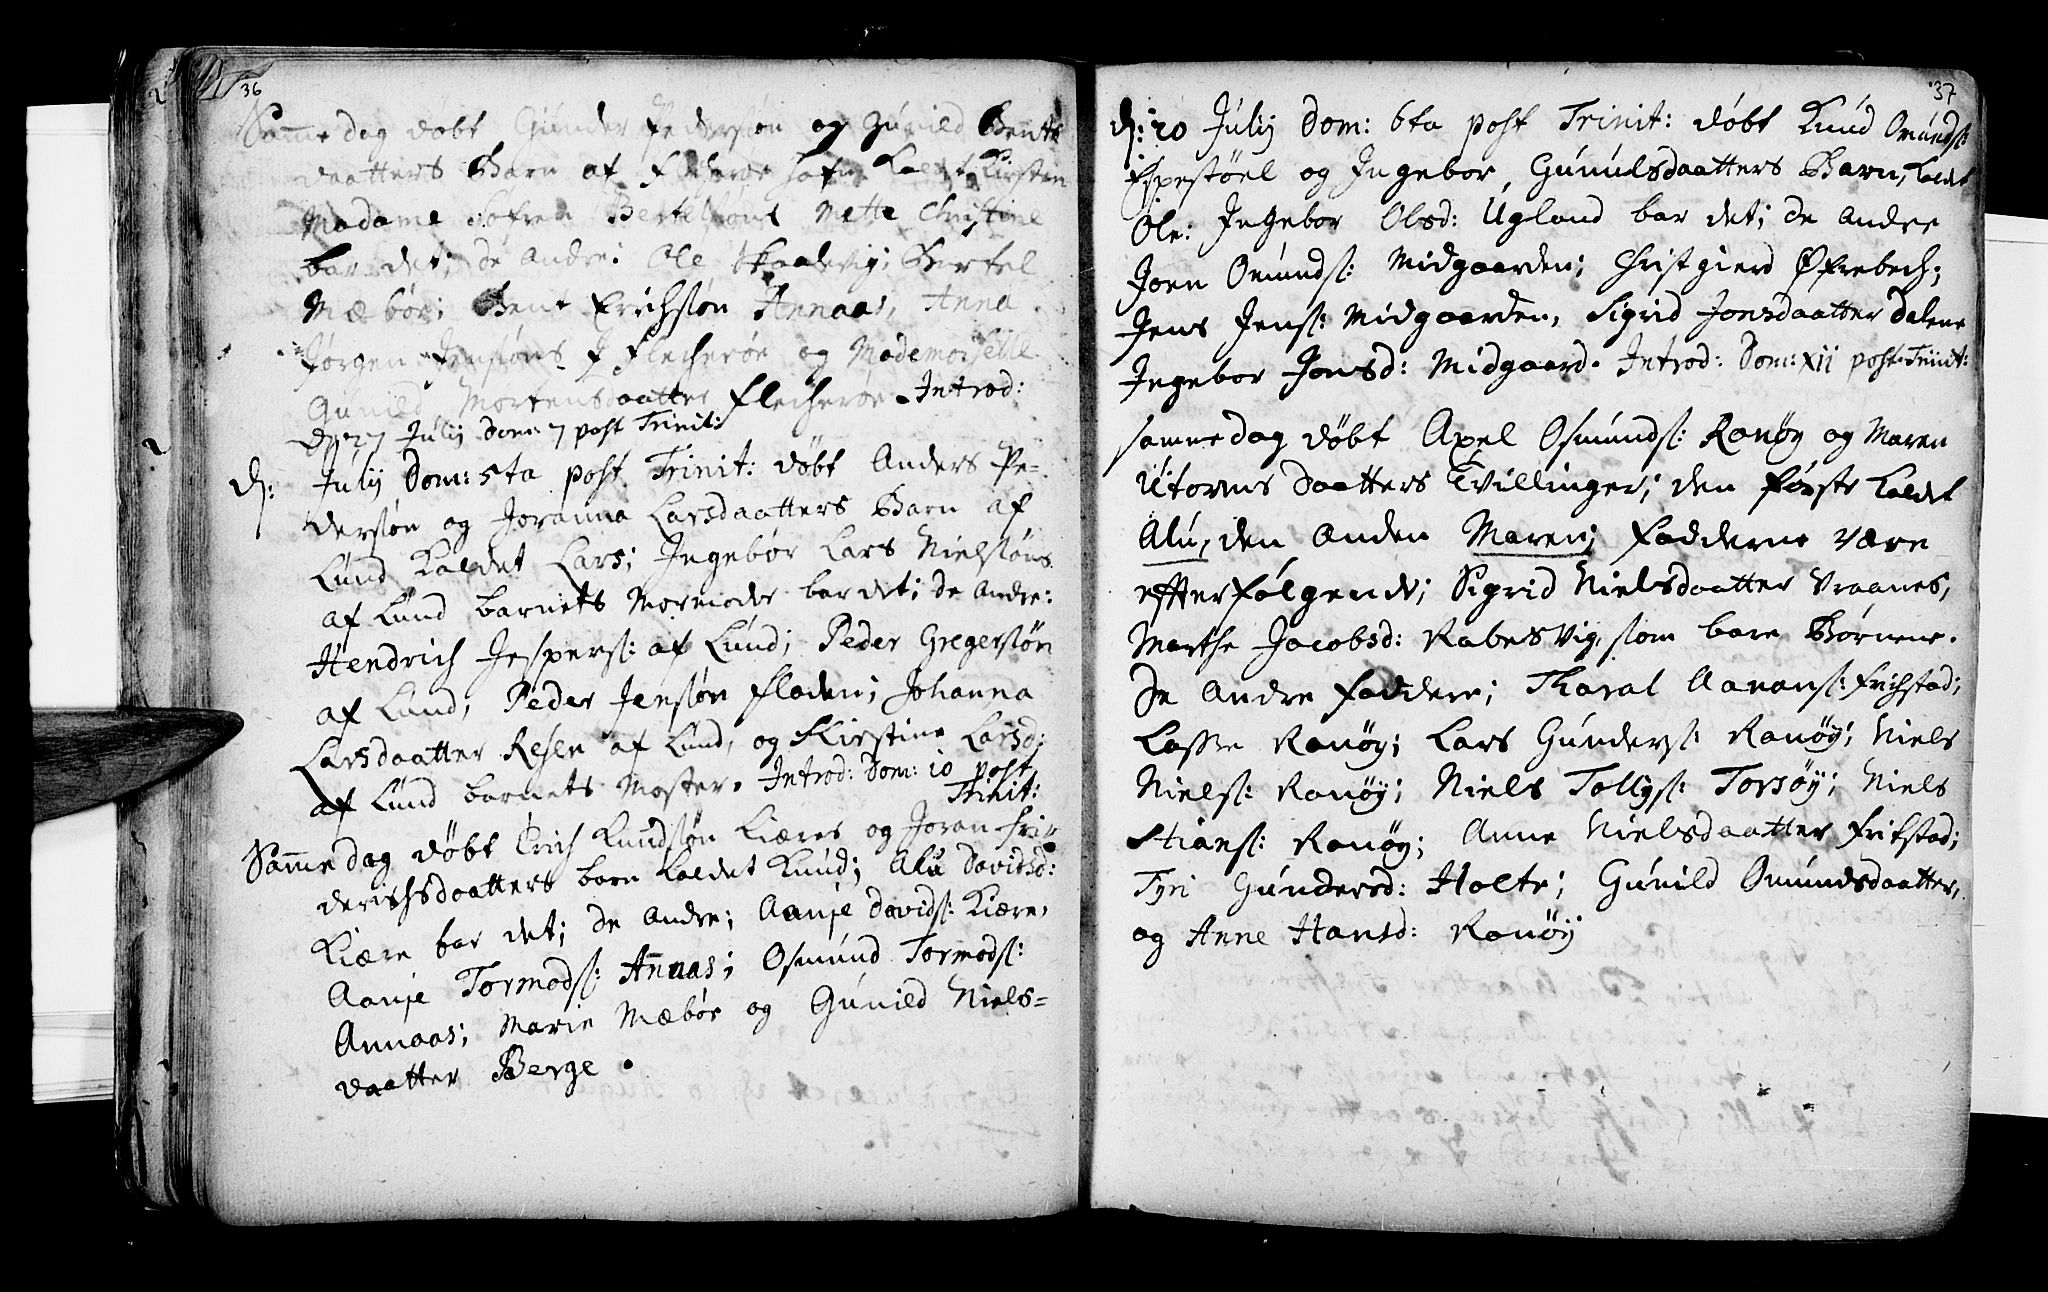 36
Samme dag döbt Gunder Pedersøn og Gunild Bents
daatters Barn af Flecheröe hafn kaldet Kirsten
Madame Søfren Bertelsøns Mette Christine
bar det; de andre: Ole Skaalevig; Bertel
Mæbøe; Bent Erichsøn Annaas, Anna
Jørgen Jensøns i Flecherøe og Mademoiselle
Gunild Mortensdaatter Flecherøe. Introd:
D. 27 Julij Dom: 7 post Trinit:
d: Julij Dom: 5ta post Trinit: döbt Anders Pe-
dersøn og Joranna Larsdaatters Barn af
Lund kaldet Lars; Ingebør Lars Nielsøns
af Lund barnets Mormoder bar det; De andre:
Hendrich Jespers: af Lund; Peder Gregersøn
af Lund, Peder Jensøn Floden; Johanna
Larsdaatter Resen af Lund, og Kirstine Larsd:
af Lund barnets Moster. Introd: Dom: 10 post
Trinit:
Samme dag döbt Erich Knudsøn Kiæres og Joran Fri-
derichsdaatters barn kaldet Knud; Alu Davidsd:
Kiære bar det; de andre; Aanje Davids: Kiære,
Aanje Tormods: Annaas; Osmund Tormods:
Annaas; Marie Mæbøe og Gunild Niels-
daatter Berge.
37
d: 20 Julij Dom: 6ta post Trinit: döbt Knud Omunds:
Espestøel og Ingebor, Gunulsdaatters Barn, kaldet
Ole: Ingebor Olsd: Ugland bar det; de andre
Joen Omunds: Midgaarden; Christgierd Øfrebech;
Jens Jens: Midgaarden, Sigrid Jonsdaatter Dalene
Ingebor Jonsd: Midgaard. Introd: Dom: XII post Trinit:
samme dag döbt Axel Osmunds: Ranøy og Maren
Utorms Daatters Tvillinger; den første kaldet
Alu, den anden Maren; Fadderne være
efterfølgende; Sigrid Nielsdaatter Vraanes,
Marthe Jacobsd: Rabesvig, som bare Børnene.
De andre Faddere; Tharal Aanons: Frichstad;
Lasse Ranøy; Lars Gunders: Ranøy; Niels
Niels: Ranøy; Niels Tollys: Torsøy; Niels
Stians: Ranøy; Anne Nielsdaatter Frikstad;
Tyri Gundersd: Holte; Gunild Omundsdaatter,
og Anne Hansd: Ranøy